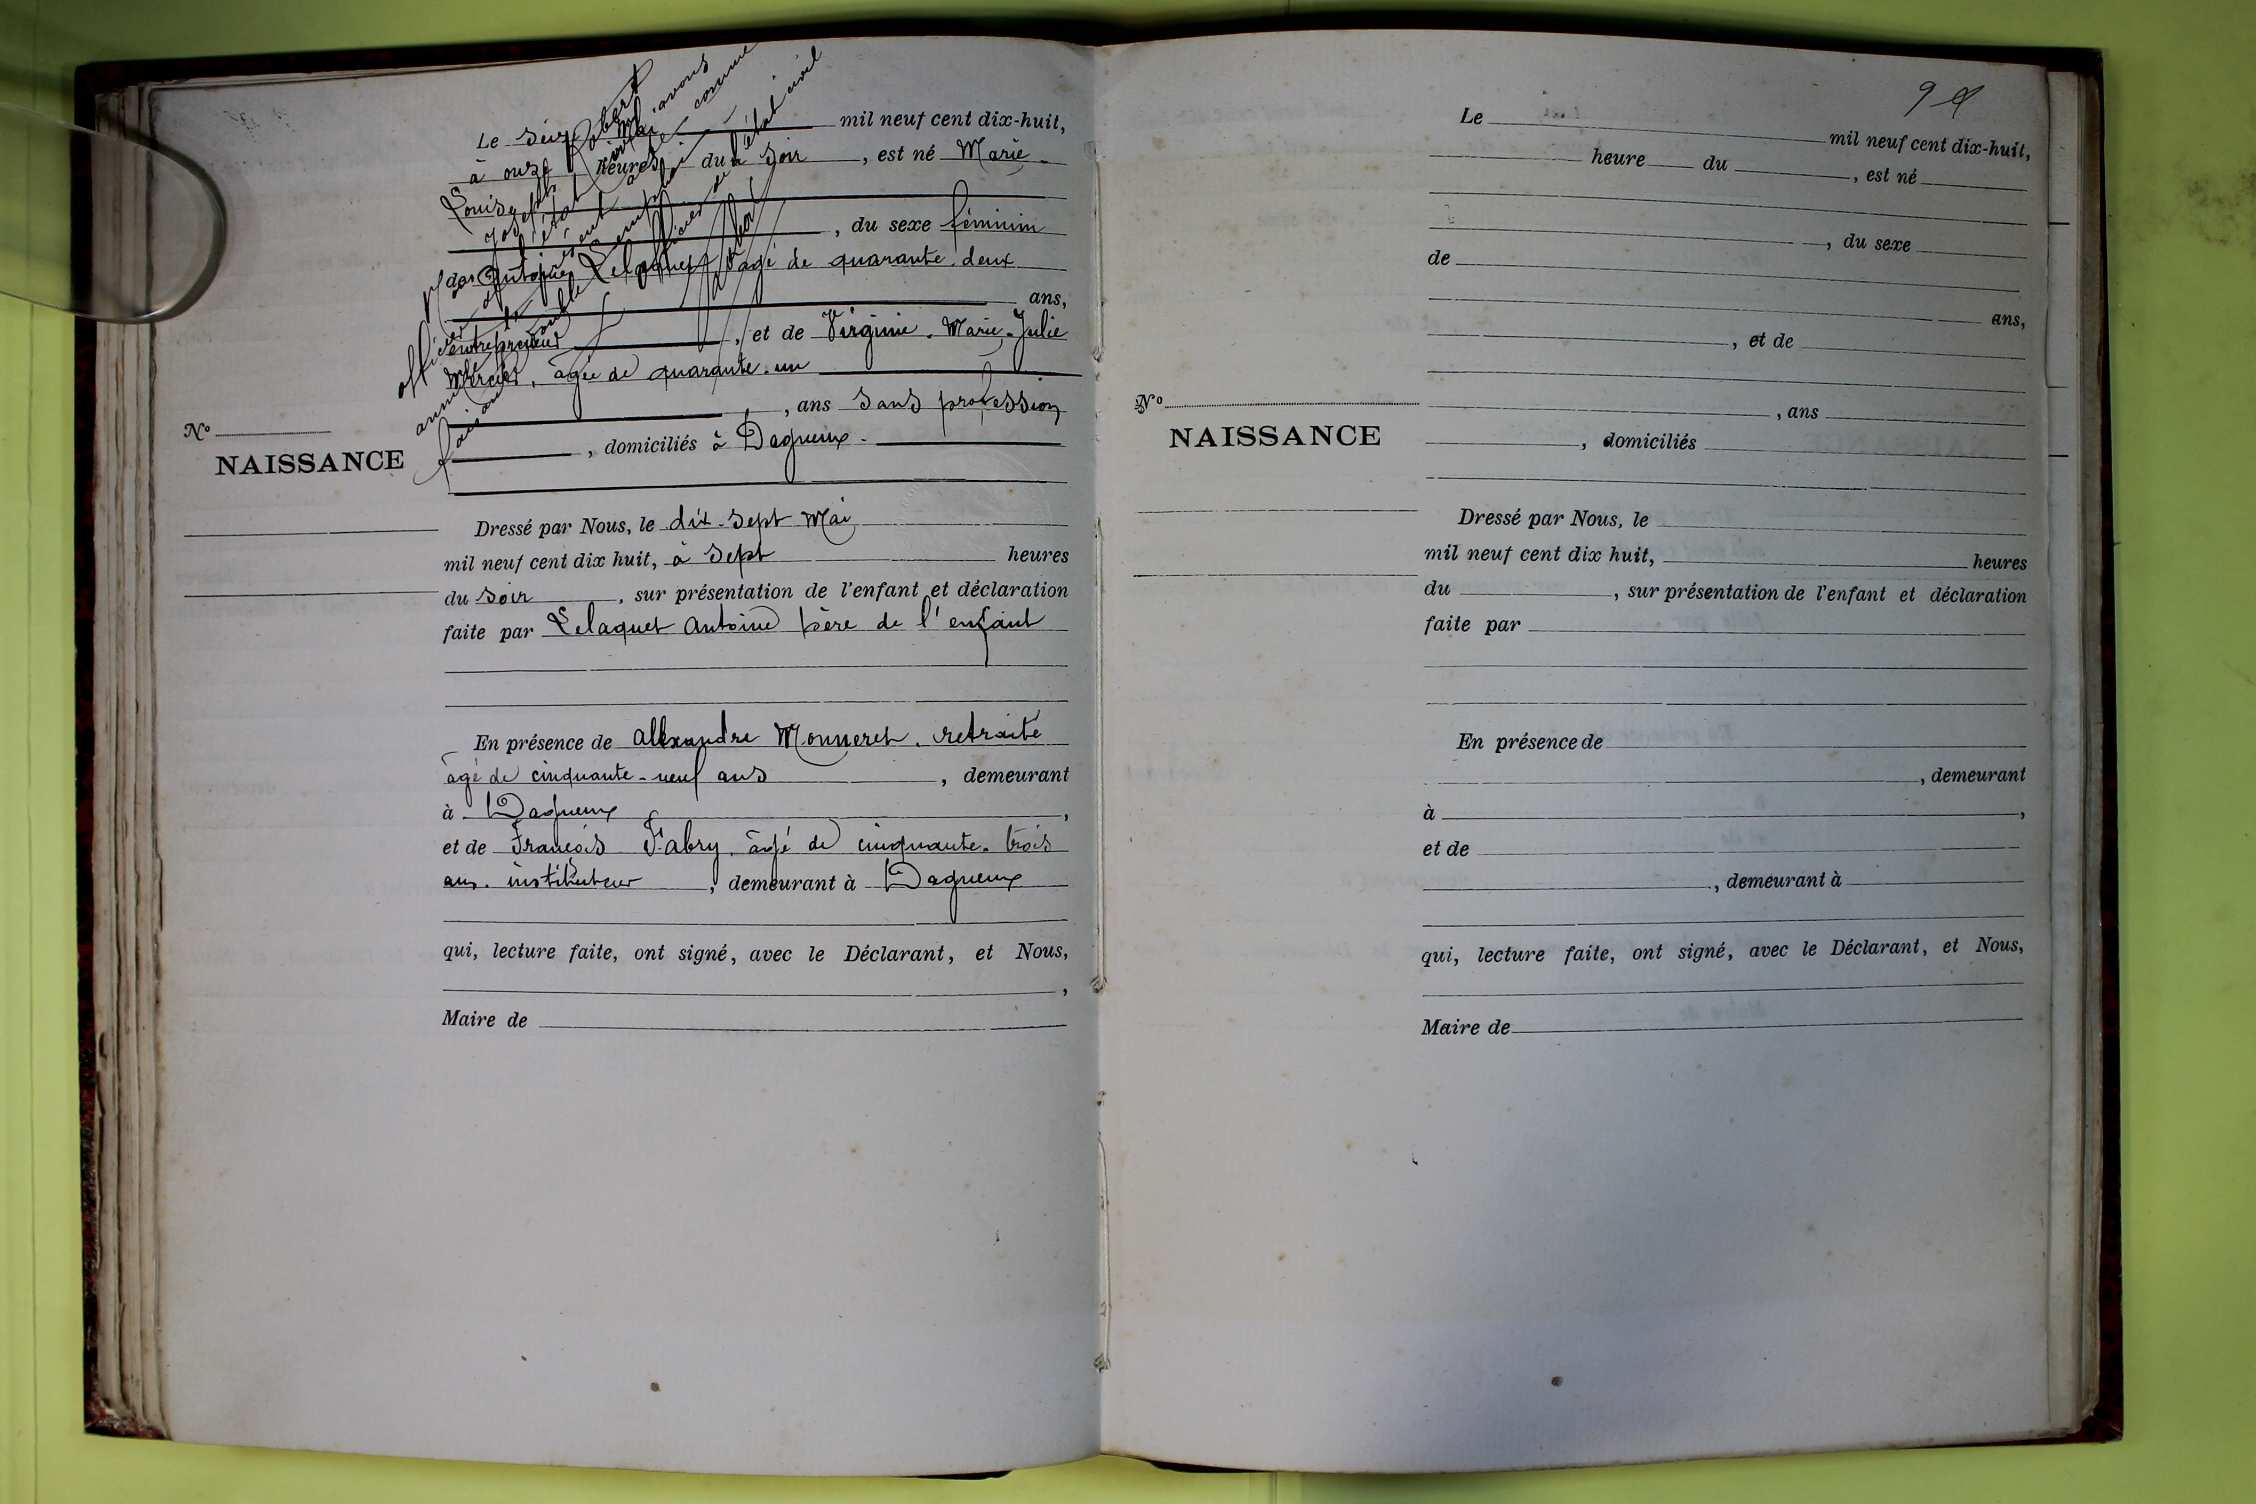 Le Seize Mai mil neuf cent dix-huit,
à onze heures du soir, est né Marie
Louise
, du sexe féminin
de Antoine Lelaquet âgé de quarante deux
ans,
entrepreneur, et de Virginie Marie Julie
Mercier, âgée de quarante un
, ans Sans profession
, domiciliés à Dagneux
Nº
NAISSANCE
Dressé par Nous, le dix-sept Mai
mil neuf cent dix huit, à sept heures
du soir, sur présentation de l'enfant et déclaration
faite par Lelaquet Antoine père de l'enfant
En présence de Alexandre Monneret, retraité
âgé de cinquante-neuf ans, demeurant
à Dagneux,
et de François Fabry, âgé de cinquante-trois
ans. instituteur, demeurant à Dagneux
qui, lecture faite, ont signé, avec le Déclarant, et Nous,
,
Maire de
Robert
Joseph
avons
l'état civil
officier
comme
faisant
Le mil neuf cent dix-huit,
heure du , est né
, du sexe
de
ans,
, et de
Nº
NAISSANCE
, ans
, domiciliés
Dressé par Nous, le
mil neuf cent dix huit, heures
du , sur présentation de l'enfant et déclaration
faite par
En présence de
, demeurant
à ,
et de
, demeurant à
qui, lecture faite, ont signé, avec le Déclarant, et Nous,
Maire de